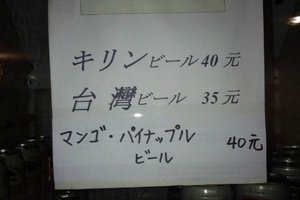 キリンビール 40 元
台灣ビール 35 元
マンゴ・パイナップル 40元
ビール